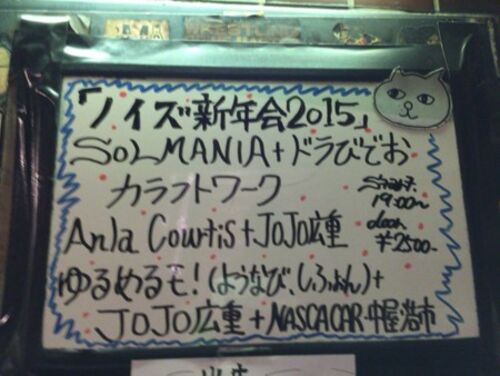 「ノイズ新年会2015」
SOLMANIA+ドラびでお
カラフトワーク
START.
19:00~
Anla Courtis+JOJO広重
door
¥2500-
ゆるめるモ!(ようなぴ、しふぉん)+
JOJO広重+NASCACAR・中屋浩市